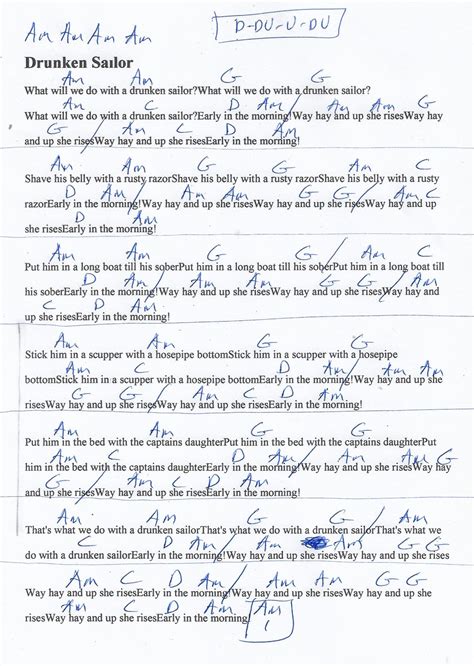 Am Am Am Am
D-DU-U-DU
Drunken Sailor
Am Am G G
What will we do with a drunken sailor?What will we do with a drunken sailor?
Am C D Am Am Am
What will we do with a drunken sailor?Early in the morning!Way hay and up she risesWay hay
G G Am C D Am
and up she risesWay hay and up she risesEarly in the morning!
Am Am G G Am C
Shave his belly with a rusty razorShave his belly with a rusty razorShave his belly with a rusty
D Am Am Am G G Am C
razorEarly in the morning!Way hay and up she risesWay hay and up she risesWay hay and up
D Am
she risesEarly in the morning!
Am Am G G Am C
Put him in a long boat till his soberPut him in a long boat till his soberPut him in a long boat till
D Am Am Am G G Am
his soberEarly in the morning!Way hay and up she risesWay hay and up she risesWay hay and
C D Am
up she risesEarly in the morning!
Am Am G G
Stick him in a scupper with a hosepipe bottomStick him in a scupper with a hosepipe
Am C D Am Am Am
bottomStick him in a scupper with a hosepipe bottomEarly in the morning!Way hay and up she
G G Am C D Am
risesWay hay and up she risesWay hay and up she risesEarly in the morning!
Am Am G G
Put him in the bed with the captains daughterPut him in the bed with the captains daughterPut
Am C D Am Am Am G
him in the bed with the captains daughterEarly in the morning!Way hay and up she risesWay hay
G Am C D Am
and up she risesWay hay and up she risesEarly in the morning!
Am Am G G Am
That's what we do with a drunken sailorThat's what we do with a drunken sailorThat's what we
C D Am Am Am G G
do with a drunken sailorEarly in the morning!Way hay and up she risesWay hay and up she rises
Am C D Am Am Am G G
Way hay and up she risesEarly in the morning!Way hay and up she risesWay hay and up she
Am C D Am Am
risesWay hay and up she risesEarly in the morning!
1